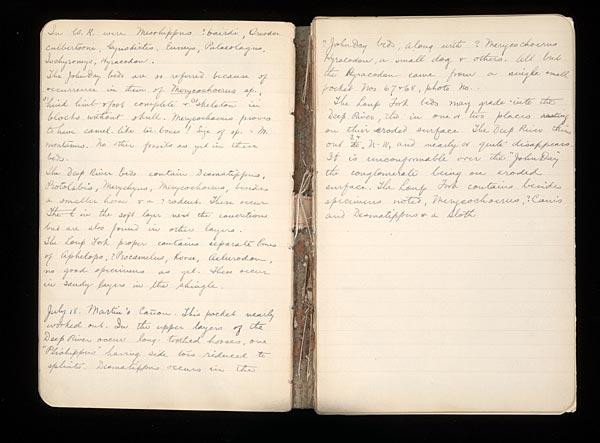 In W.R. were Mesohippus ? bairdii, Oreodon
culbertsoni, Cynodictis, Eumys, Palaeolagus,
Ischyromys, Hyracodon.
The John Day beds are so referred because of
occurrence in them of Merycochoerus sp.,
hind limb & foot complete & skeleton in
blocks without skull. Merycochoerus proves
to have camel-like tie bones! Size of sp. = M.
montanus. No other fossils as yet in these
beds.
The Deep River beds contain Desmatippus,
Protolabis, Merychyus, Merycochoerus, besides
a smaller horse & a ? rodent. These occur
in the soft layer next the concretions
but are also found in other layers.
The Loup Fork proper contains separate bones
of Aphelops, ? Procamelus, horse, Aelurodon,
no good specimens as yet. These occur
in sandy layers in the shingle.
July 18. Martin's Cañon. This pocket nearly
worked out. In the upper layers of the
Deep River occur long-toothed horses, one
"Pliohippus" having side toes reduced to
splints. Desmatippus occurs in the
"John Day beds, along with ? Merycochoerus
Hyracodon, a small dog & others. All but
the Hyracodon came from a single small
pocket Nos 67 & 68, photo No.
The Loup Fork beds may grade into the
Deep River, tho in one or two places
on their eroded surface. The Deep River thins
out N-W, and nearly or quite disappears.
It is unconformable over the "John Day"
the conglomerate being on eroded
surface. The Loup Fork contains besides
specimens noted, Merycochoerus, ? Canis
and Desmatippus & a sloth